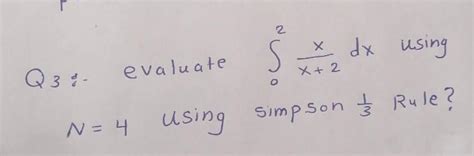 Q3:- evaluate ∫₀² x/(x+2) dx using
N = 4 using simpson 1/3 Rule?